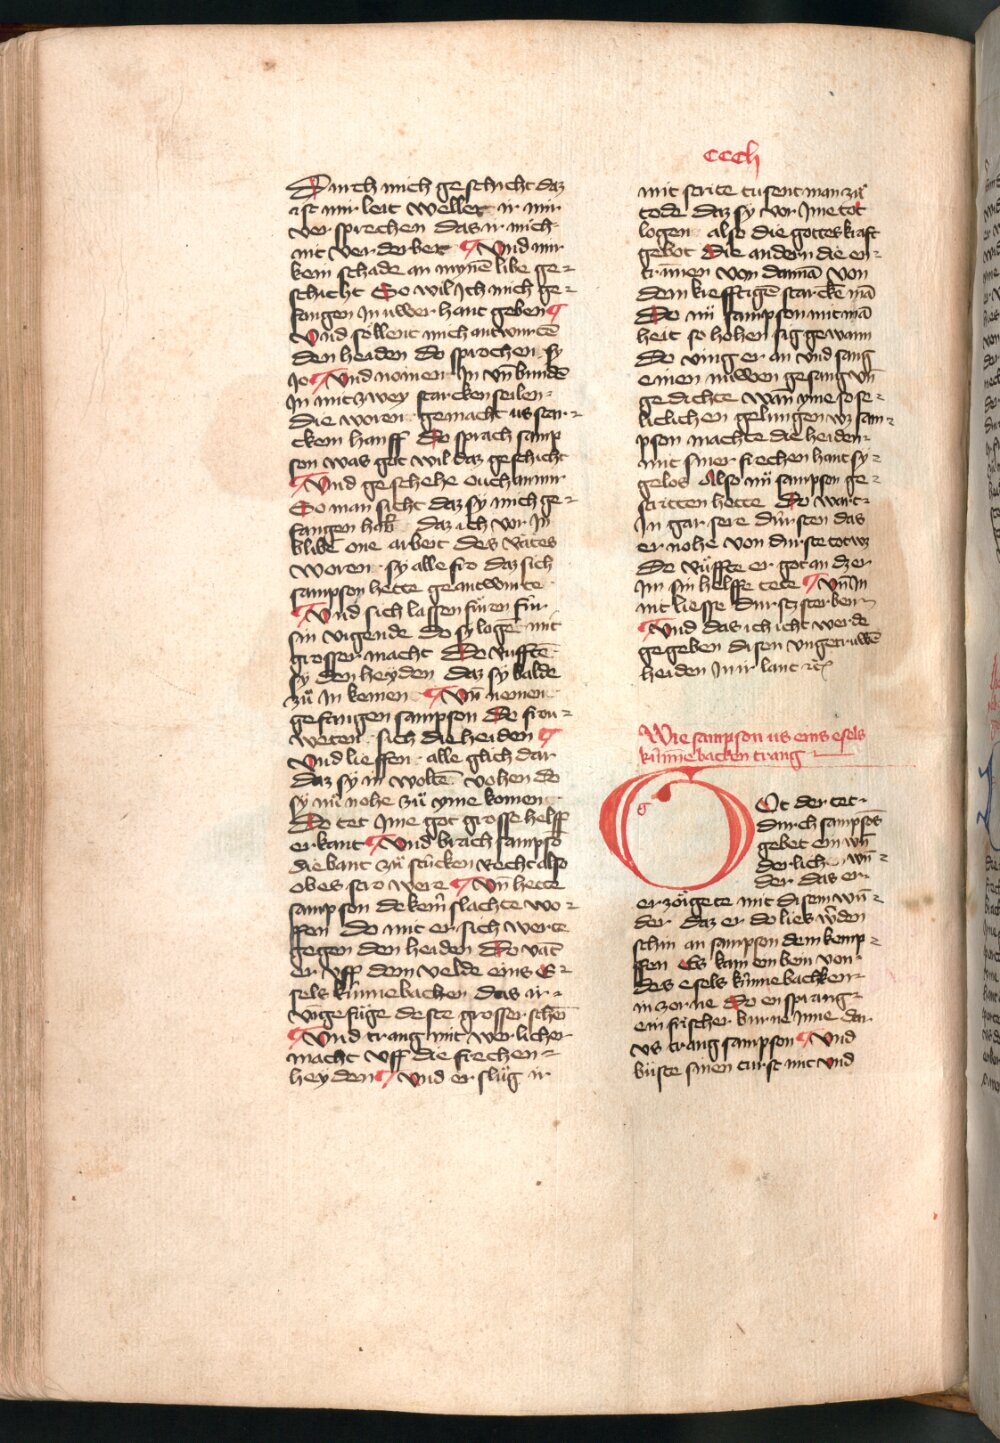 cccli
Durch mich geschicht daz
ist mir leit wellet ir mir
ver sprechen das ir mich
nit ver derbet ¶ Vnd mir
kein schade an mynē libe ge⸗
schicht So wil Ich mich ge⸗
fangen In uwer hant geben ¶
Vnd sollent mich antwurtē
den heiden do sprochen sy
Jo ¶ Vnd nomen In vn̄ bundē
In mit zwey starcken seilen
die woren gemacht us star⸗
ckem hanff Do sprach samp
son was got wil daz geschicht
¶ Vnd geschehe ouch an mir
Do man sicht daz sy mich ge⸗
fangen hāt daz ich vor In
blibe one arbeit des rates
woren sy alle fro daz sich
sampson hette geantwurte
¶ Vnd sich lassen füren sin
sin vigende do sy logē mit
grosser macht Do rufftē
sy den heyden daz sy balde
zů In kemen ¶ Vn̄ nemen
gefangen sampson Do frou⸗
weten sich die heiden ¶
Vnd lieffen alle glich dar
daz sy in woltē vohen do
sy nů nohe zů yme komen
Do tet Ime got grosse helff
erkant ¶ Vnd brach sampso
die bant zů stücken recht also
ob es stro were ¶ Vn̄ hette
sampson dekein slachte wo⸗
ffen do mit er sich werte
gegen den heiden Do vāt
er uff dem velde eins es⸗
sels kinnebacken das ir⸗
vngefüge deste grosser schē
¶ Vnd trang mit werlicher
macht uff die frechen⸗
heyden ¶ Vnd er slůg ir
mit strite tusent man zů
tode daz sy vor Ime tot
logen also die gottes kraft
gebot Die andern die en⸗
trūnen von dannā von
dem kiefftigē starckē mā
Do nů sampson mit mā
heit so hohen sig gewann
Do ving er an vnd sang
einen nuwen gesang vn̄
gedichte wan yme so se⸗
liclichen gelungen wz sam⸗
pson machte die heiden
mit siner frechen hant sy⸗
gelos Also nů sampson ge⸗
stritten hette Do wart
In gar sere dürsten das
er nohe von durste tot wz
Do rüffte er got an dz er
Im sin helffe tete ¶ Vn̄ In
nit liesse durstz sterben
¶ Vnd das ich icht werde
gegeben disen vngetruwē
heiden In ir lant ⁊c
Wie sampson us eins esels
kinnebacken trang
Got der tet
durch sampsōs
gebet ein wū
derlich wū⸗
der das er
erzöigete mit disem wū⸗
der daz er do lies wͤden
schin an sampson dem kemp⸗
ffen Es kam ein bein von
des esels kinnebacken
in zorne do ensprang
ein frischer burne Inne dar
us trang sampson ¶ Vnd
büste sinen turst mit vnd